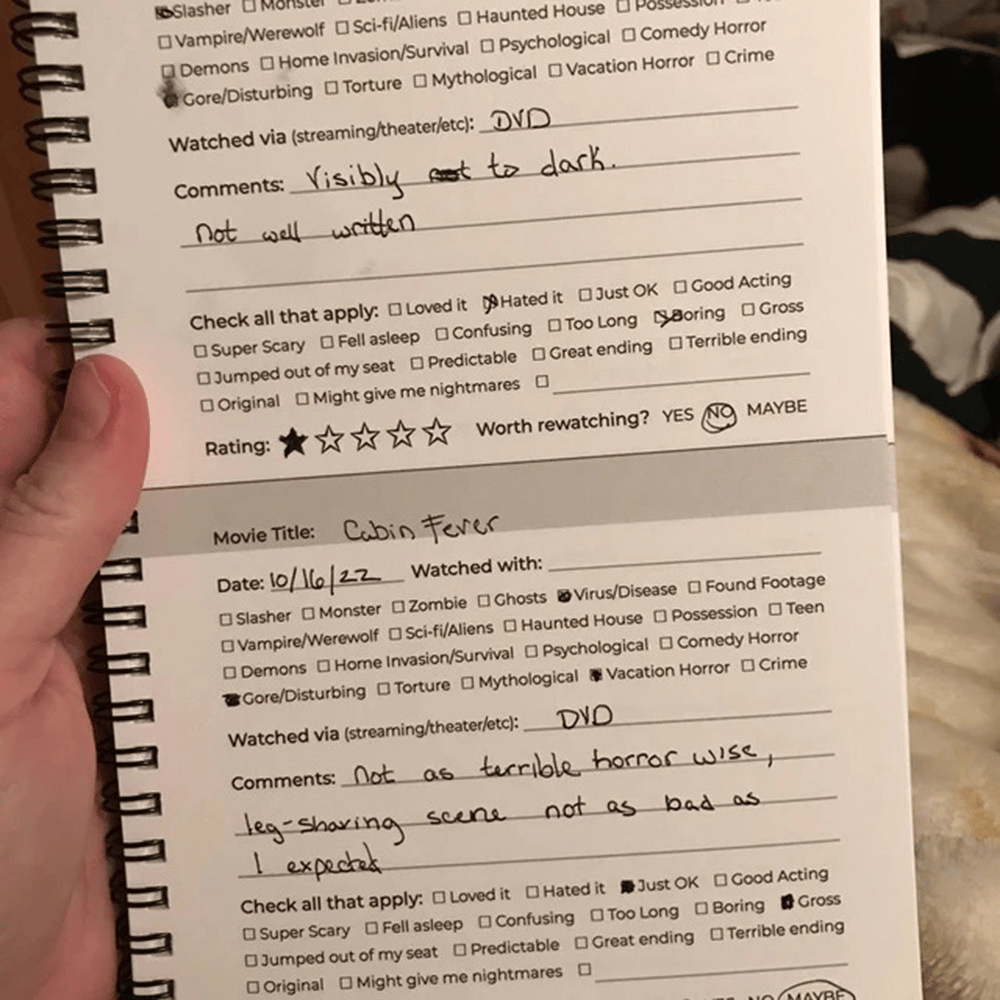 Slasher □ Monster
□ Vampire/Werewolf □ Sci-fi/Aliens □ Haunted House □ Possession
□ Demons □ Home Invasion/Survival □ Psychological □ Comedy Horror
Gore/Disturbing □ Torture □ Mythological □ Vacation Horror □ Crime
Watched via (streaming/theater/etc): DVD
Comments: Visibly to dark.
not well written
Check all that apply: □ Loved it Hated it □ Just OK □ Good Acting
□ Super Scary □ Fell asleep □ Confusing □ Too Long Boring □ Gross
□ Jumped out of my seat □ Predictable □ Great ending □ Terrible ending
□ Original □ Might give me nightmares □
Rating: ★ ☆ ☆ ☆ ☆ Worth rewatching? YES NO MAYBE
Movie Title: Cabin Fever
Date: 10/16/22 Watched with:
□ Slasher □ Monster □ Zombie □ Ghosts Virus/Disease □ Found Footage
□ Vampire/Werewolf □ Sci-fi/Aliens □ Haunted House □ Possession □ Teen
□ Demons □ Home Invasion/Survival □ Psychological □ Comedy Horror
Gore/Disturbing □ Torture □ Mythological Vacation Horror □ Crime
Watched via (streaming/theater/etc): DVD
Comments: Not as terrible horror wise,
leg-sharing scene not as bad as
I expected
Check all that apply: □ Loved it □ Hated it Just OK □ Good Acting
□ Super Scary □ Fell asleep □ Confusing □ Too Long □ Boring Gross
□ Jumped out of my seat □ Predictable □ Great ending □ Terrible ending
□ Original □ Might give me nightmares □
NO MAYBE